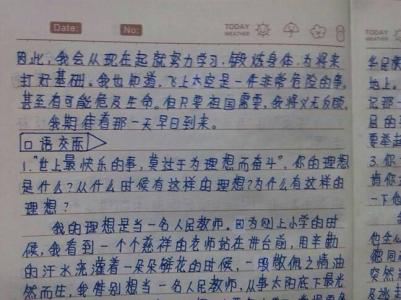 Date: No: TODAY WEATHER
因此,我会从现在起就努力学习,锻炼身体,为将来
打好基础。我也知道,飞上太空是一件非常危险的事,
甚至有可能危及生命。但只要祖国需要,我将义无反顾。
我期待着那一天早日到来。
口语交际
1."世上最快乐的事,莫过于为理想而奋斗"。你的理想
是什么?从什么时候有这样的理想?为什么有这样的
理想?
我的理想是当一名人民教师。因为刚上小学的时
候,我看到一个个慈祥的老师站在讲台前,用辛勤
的汗水浇灌着一朵朵鲜花的时候,一股敬佩之情油
然而生,我特别想当一名人民教师,从事太阳底下最光
TODAY WEATHER
地上。
记那一